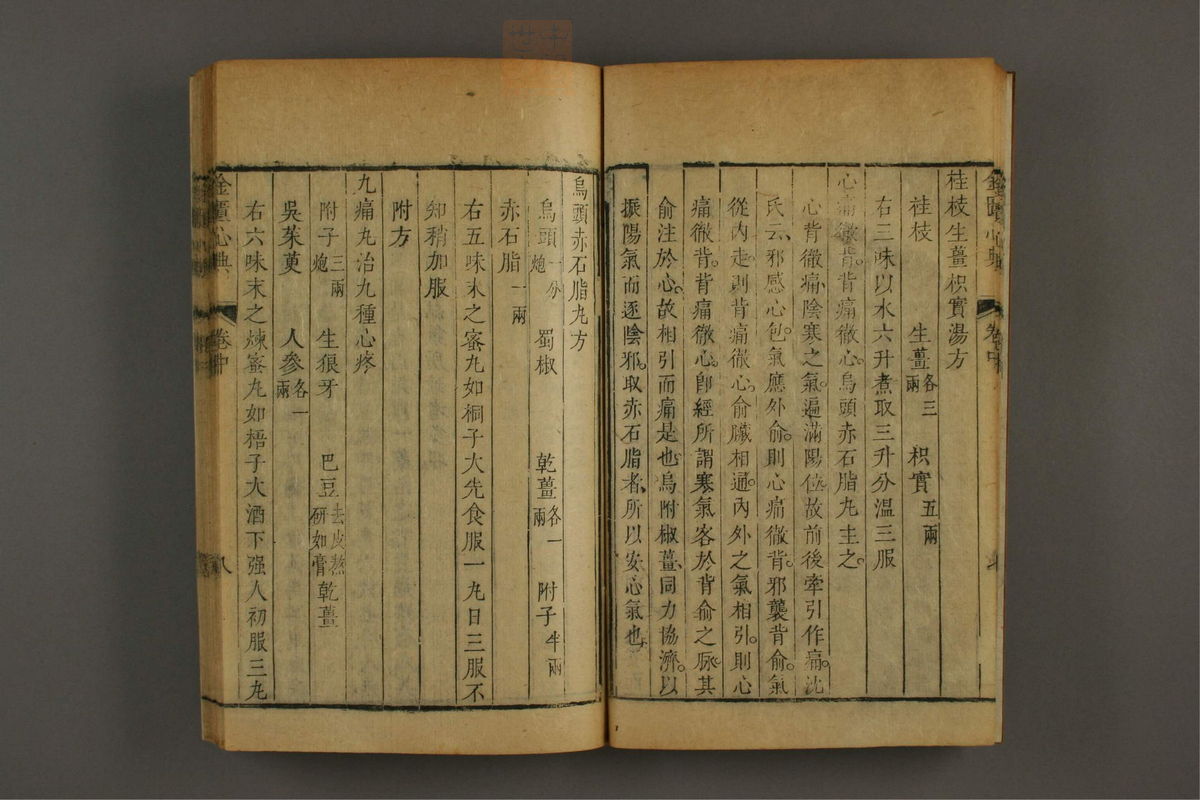 金匱心典 卷中
桂枝生薑枳實湯方
桂枝 生薑各三兩 枳實五兩
右三味以水六升煮取三升分溫三服
心痛徹背。背痛徹心。烏頭赤石脂丸主之。
心背徹痛。陰寒之氣。遍滿陽位。故前後牽引作痛。沈
氏云。邪感心包。氣應外俞。則心痛徹背。邪襲背俞。氣
從內走。則背痛徹心。俞臟相通。內外之氣相引。則心
痛徹背。背痛徹心。卽經所謂寒氣客於背俞之脈。其
俞注於心。故相引而痛是也。烏附椒薑。同力協濟。以
振陽氣而逐陰邪。取赤石脂者。所以安心氣也。
烏頭赤石脂丸方
烏頭炮一分 蜀椒 乾薑各一兩 附子半兩
赤石脂一兩
右五味末之蜜丸如桐子大先食服一丸日三服不
知稍加服
附方
九痛丸治九種心疼
附子三兩炮 生狼牙 巴豆去皮熬研如膏 乾薑
吳茱萸 人參各一兩
右六味末之煉蜜丸如梧子大酒下强人初服三丸
金匱心典 卷中 八